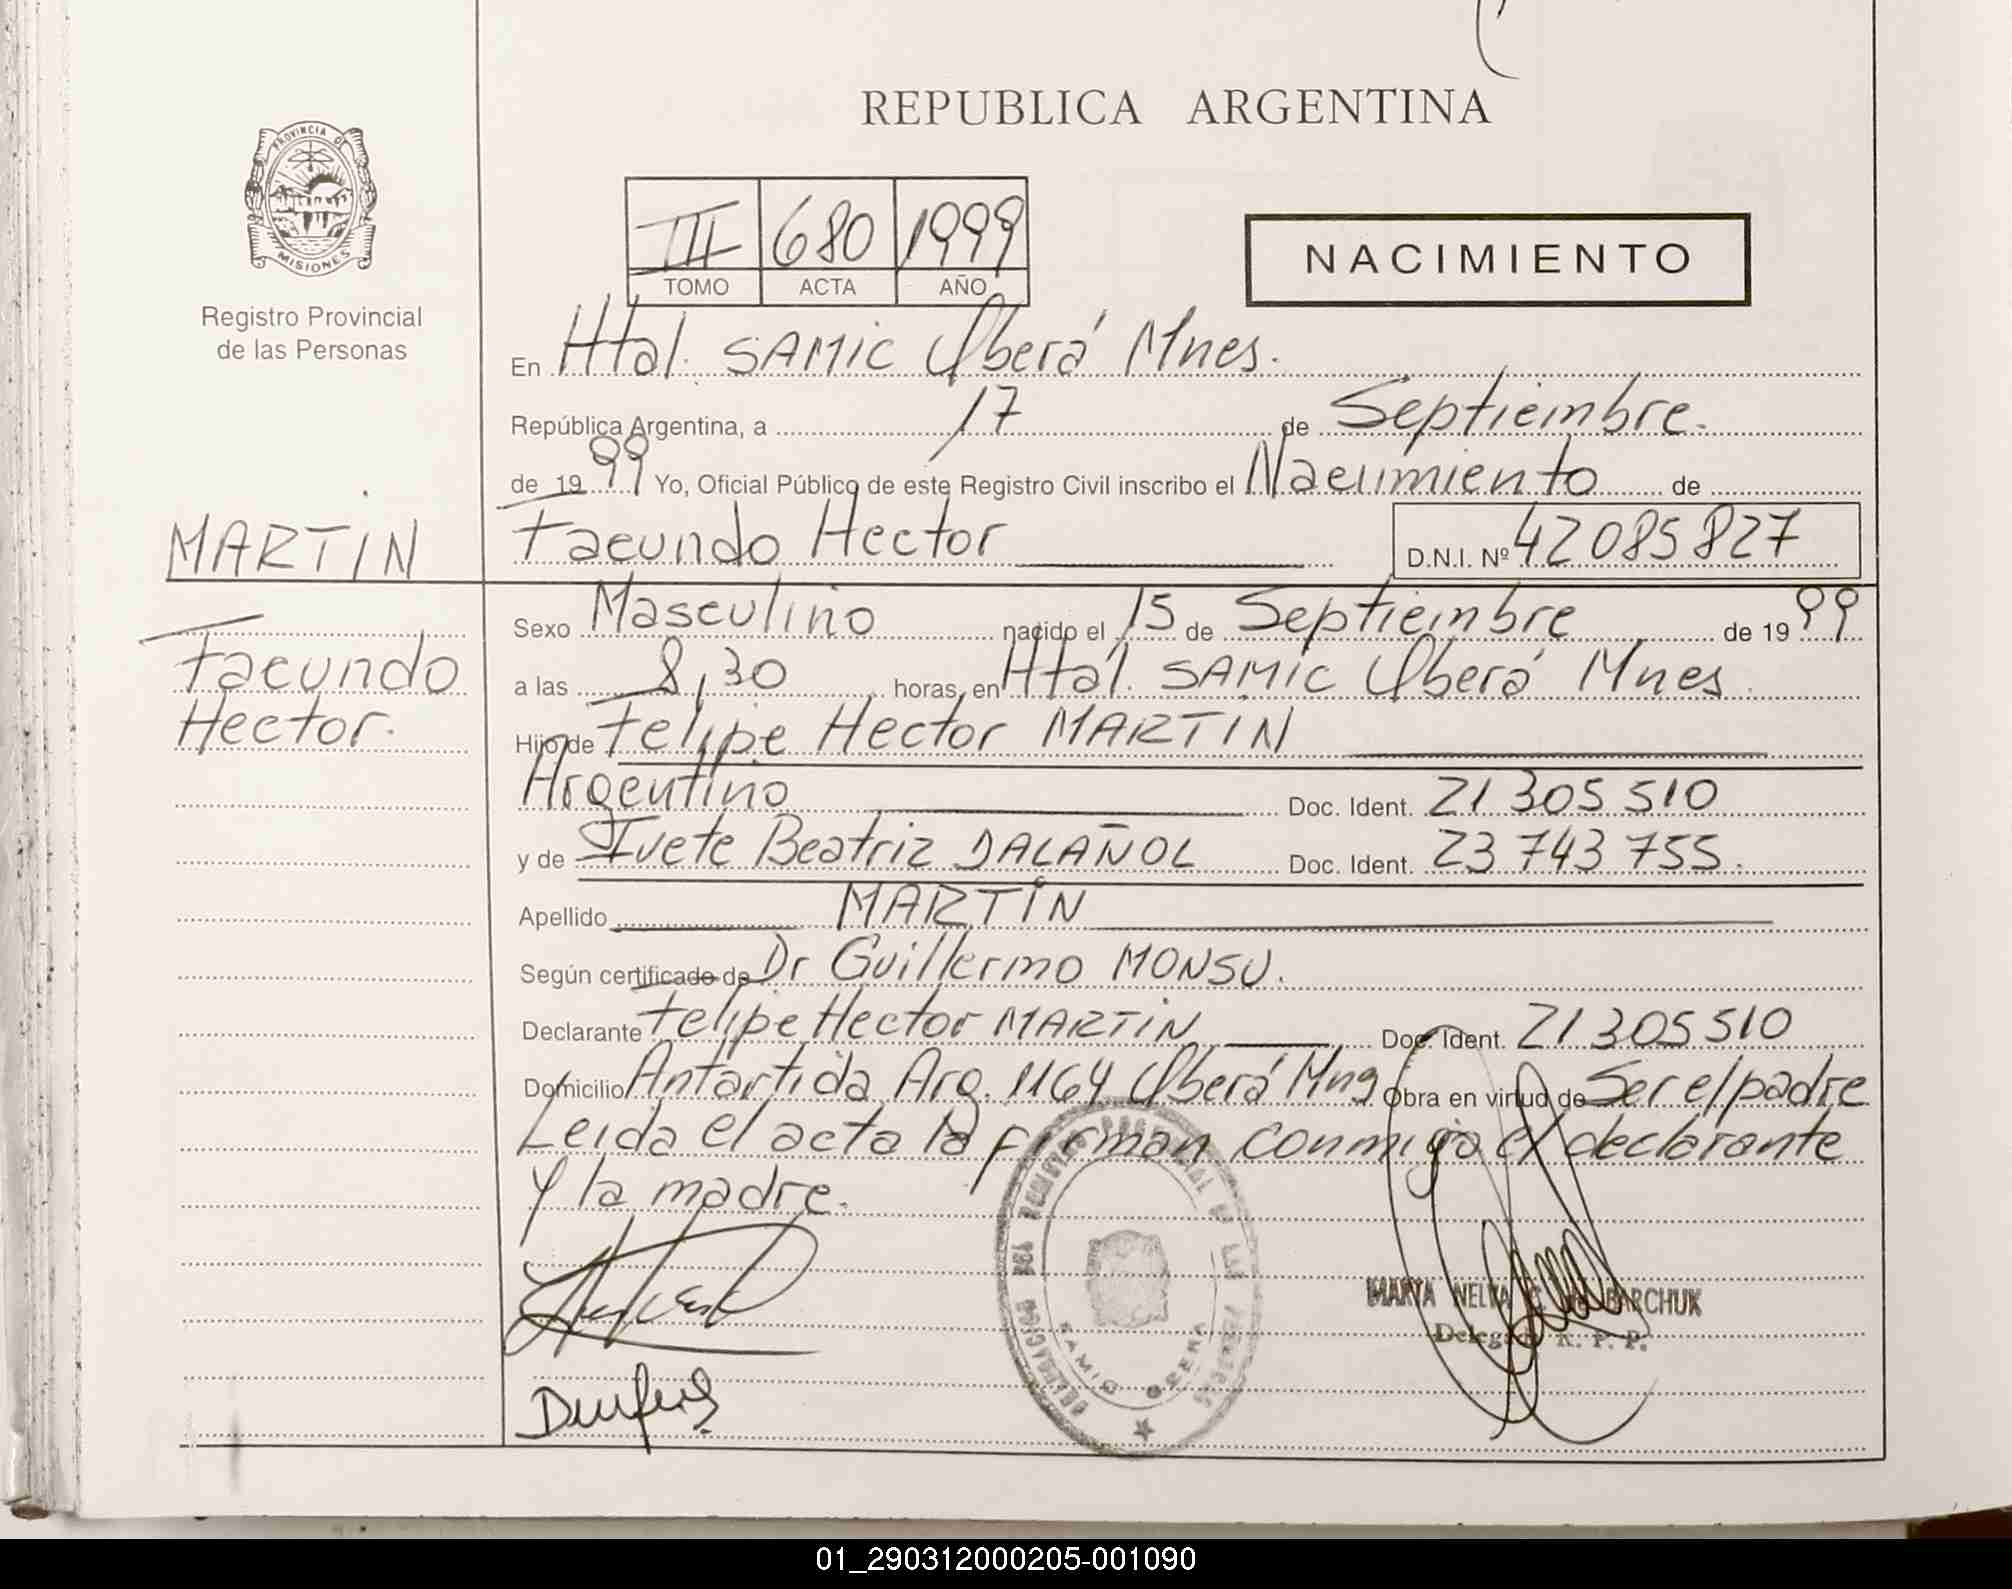 REPUBLICA ARGENTINA
PROVINCIA DE
MISIONES
Registro Provincial
de las Personas
III 680 1999
TOMO ACTA AÑO
NACIMIENTO
En Htal. SAMIC Oberá Mnes.
República Argentina, a 17 de Septiembre.
de 1999 Yo, Oficial Público de este Registro Civil inscribo el Nacimiento de
MARTIN
Facundo Hector D.N.I. Nº 42085827
Sexo Masculino nacido el 15 de Septiembre de 1999
Facundo
a las 8,30 horas, en Htal. SAMIC Oberá Mnes.
Hector.
Hijo de Felipe Hector MARTIN
Argentino Doc. Ident. 21 305 510
y de Ivete Beatriz DALAÑOL Doc. Ident. 23 743 755.
Apellido MARTIN
Según certificado de Dr Guillermo MONSU.
Declarante Felipe Hector MARTIN Doc. Ident. 21 305 510
Domicilio Antartida Arg. 1164 Oberá Mns Obra en virtud de Ser el padre
Leida el acta la firman conmigo el declarante
y la madre.
DELEGACION DEL REGISTRO PROVINCIAL DE LAS PERSONAS
SAMIC OBERA
MARTA NELVA BARCHUK
R. P. P.
01_290312000205-001090